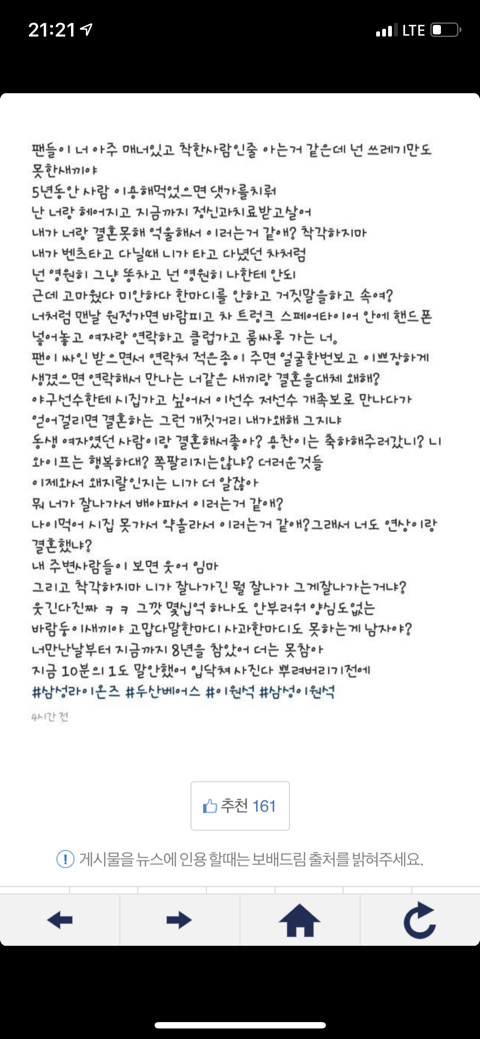 21:21
LTE
팬들이 너 아주 매너있고 착한사람인줄 아는거 같은데 넌 쓰레기만도
못한새끼야
5년동안 사람 이용해먹었으면 댓가를치뤄
난 너랑 헤어지고 지금까지 정신과치료받고살어
내가 너랑 결혼못해 억울해서 이러는거 같애? 착각하지마
내가 벤츠타고 다닐때 니가 타고 다녔던 차처럼
넌 영원히 그냥 똥차고 넌 영원히 나한테 안되
근데 고마웠다 미안하다 한마디를 안하고 거짓말을하고 속여?
너처럼 맨날 원정가면 바람피고 차 트렁크 스페어타이어 안에 핸드폰
넣어놓고 여자랑 연락하고 클럽가고 룸싸롱 가는 너。
팬이 싸인 받으면서 연락처 적은종이 주면 얼굴한번보고 이쁘장하게
생겼으면 연락해서 만나는 너같은 새끼랑 결혼을대체 왜해?
야구선수한테 시집가고 싶어서 이선수 저선수 개족보로 만나다가
얻어걸리면 결혼하는 그런 개짓거리 내가왜해 그지냐
동생 여자였던 사람이랑 결혼해서좋아? 용찬이는 축하해주러갔니? 니
와이프는 행복하대? 쪽팔리지는않냐? 더러운것들
이제와서 왜지랄인지는 니가 더 알잖아
뭐 너가 잘나가서 배아파서 이러는거 같애?
나이먹어 시집 못가서 악올라서 이러는거 같애?그래서 너도 연상이랑
결혼했냐?
내 주변사람들이 보면 웃어 임마
그리고 착각하지마 니가 잘나가긴 뭘 잘나가 그게잘나가는거냐?
웃긴다진짜 ㅋ ㅋ 그깟 몇십억 하나도 안부러워 양심도없는
바람둥이새끼야 고맙다말한마디 사과한마디도 못하는게 남자야?
너만난날부터 지금까지 8년을 참았어 더는 못참아
지금 10분의 1도 말안했어 입닥쳐 사진다 뿌려버리기전에
#삼성라이온즈 #두산베어스 #이원석 #삼성이원석
4시간 전
추천 161
게시물을 뉴스에 인용 할때는 보배드림 출처를 밝혀주세요.